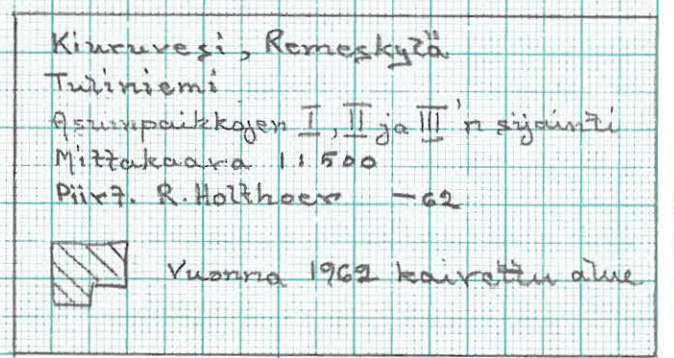 Kiuruvesi, Remeskylä
Tuliniemi
Asuinpaikkojen I, II ja III'n sijainti
Mittakaava 1:500
Piirt. R. Holthoer -62
Vuonna 1962 kaivettu alue